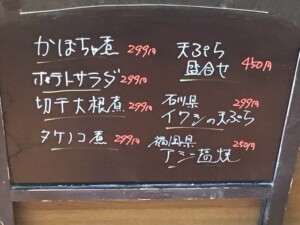 かぼちゃ煮 299円
ポテトサラダ 299円
切干大根煮 299円
タケノコ煮 299円
天ぷら
盛合せ 450円
石川県 299円
イワシの天ぷら
福岡県 250円
アジ塩焼